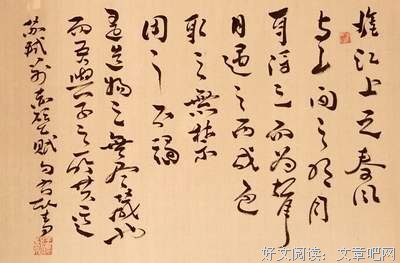 惟江上之春风
与山间之明月
耳得之而为声
目遇之而成色
取之無禁
用之不竭
是造物之無尽藏也
而吾與子之所共适
苏轼前赤壁赋句
好文阅读：文章吧网